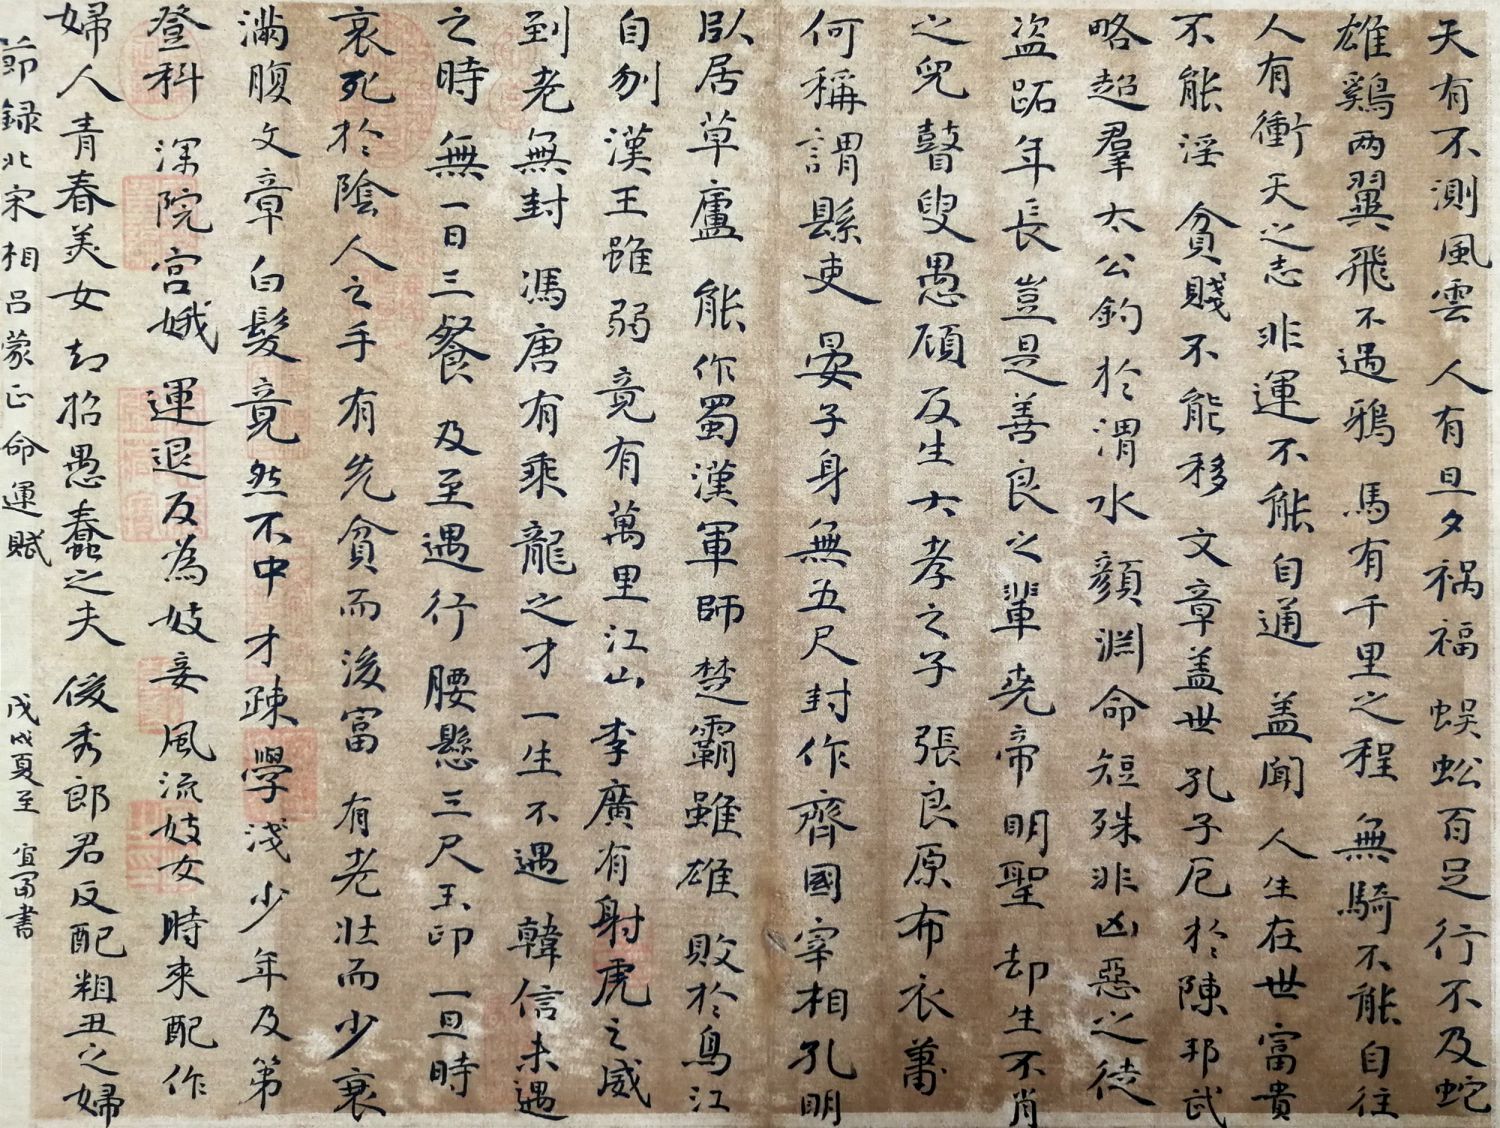 天有不測風雲 人有旦夕禍福 蜈蚣百足行不及蛇
雄鷄两翼飛不過鴉 馬有千里之程 無騎不能自往
人有衝天之志 非運不能自通 盖聞 人生在世富貴
不能淫 貧賤不能移 文章盖世 孔子厄於陳邦武
略超羣太公釣於渭水 顏淵命短殊非凶惡之徒
盜跖年長豈是善良之輩 堯帝明聖 却生不肖
之兒 瞽叟愚頑反生大孝之子 張良原布衣蕭
何稱謂縣吏 晏子身無五尺封作齊國宰相孔明
臥居草廬 能作蜀漢軍師 楚霸雖雄 敗於烏江
自刎 漢王雖弱 竟有萬里江山 李廣有射虎之威
到老無封 馮唐有乘龍之才 一生不遇 韓信未遇
之時 無一日三餐 及至遇行 腰懸三尺玉印 一旦時
衰死於陰人之手 有先貧而後富 有老壯而少衰
滿腹文章白髮竟然不中 才疎學淺 少年及第
登科 深院宮娥 運退反為妓妾 風流妓女 時來配作
婦人 青春美女却招愚蠢之夫 俊秀郎君反配粗丑之婦
節錄北宋相呂蒙正命運賦 戊戌夏至 宜
書